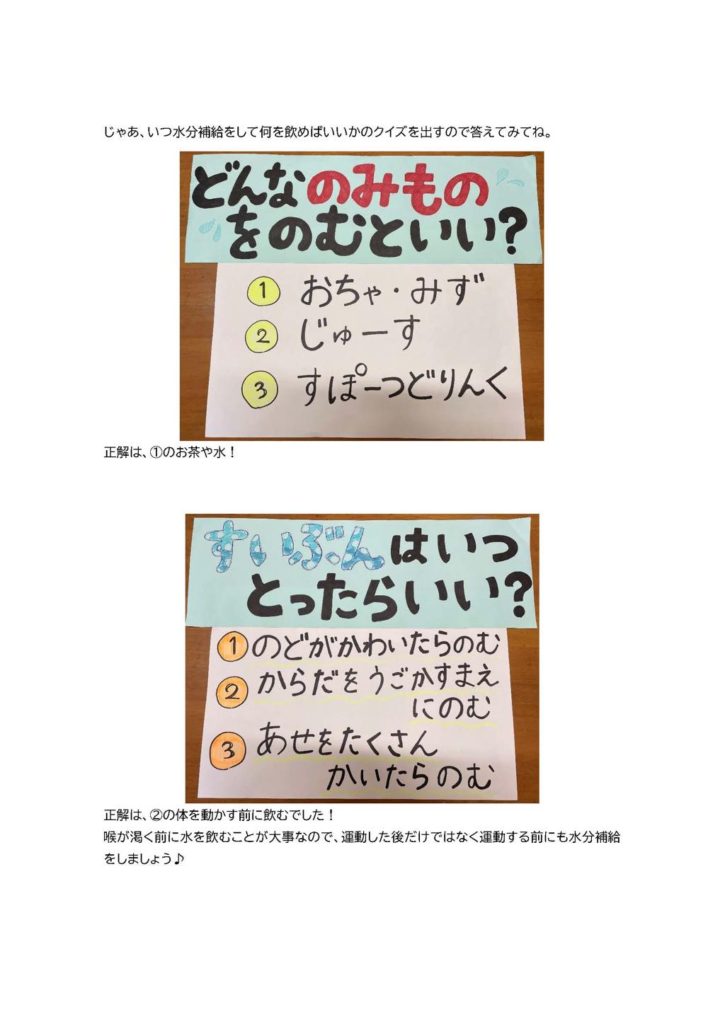 じゃあ、いつ水分補給をして何を飲めばいいかのクイズを出すので答えてみてね。
どんなのみもの
をのむといい?
① おちゃ・みず
② じゅーす
③ すぽーつどりんく
正解は、①のお茶や水！
すいぶんはいつ
とったらいい?
① のどがかわいたらのむ
② からだをうごかすまえ
にのむ
③ あせをたくさん
かいたらのむ
正解は、②の体を動かす前に飲むでした！
喉が渇く前に水を飲むことが大事なので、運動した後だけではなく運動する前にも水分補給
をしましょう♪